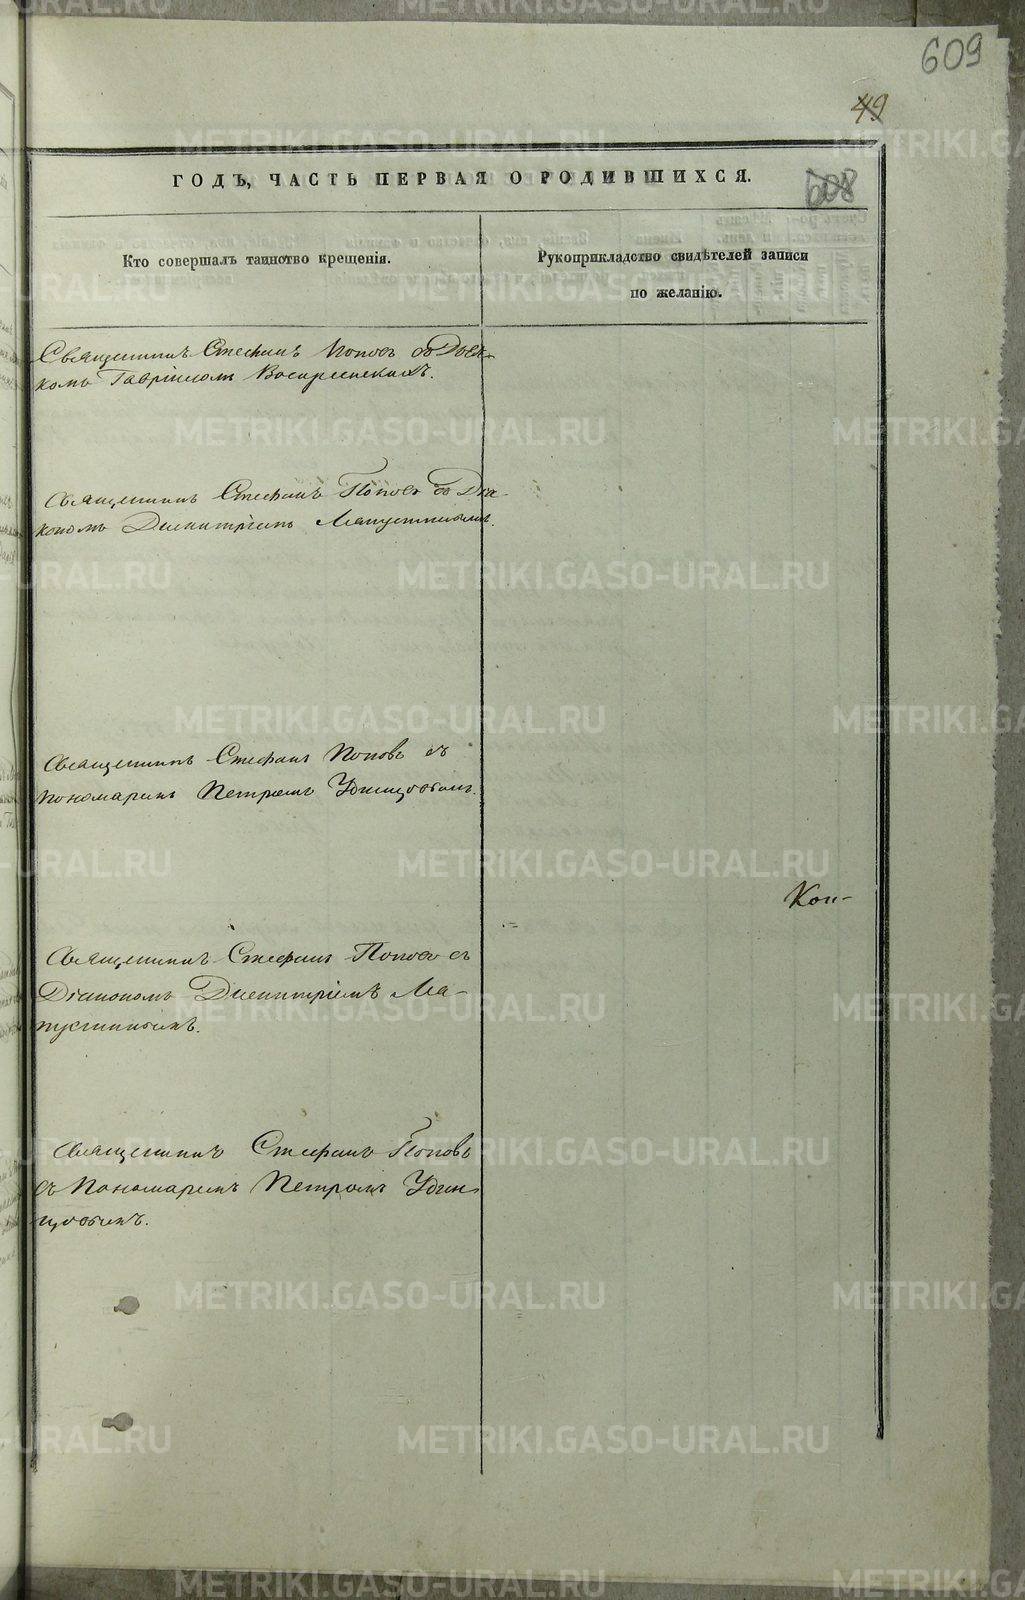 609
49
ГОДЪ, ЧАСТЬ ПЕРВАЯ О РОДИВШИХСЯ.
608
Кто совершалъ таинство крещенія.
Рукоприкладство свидѣтелей записи
по желанію.
Священникъ Стефанъ Поповъ со Дьяч-
комъ Гавріиломъ Воскресенскимъ.
Священникъ Стефанъ Поповъ со Діа-
кономъ Димитріемъ Мапустинымъ.
Священникъ Стефанъ Поповъ съ
Пономаремъ Петромъ Удинцовымъ.
Коп-
Священникъ Стефанъ Поповъ съ
Діакономъ Димитріемъ Ма-
пустинымъ.
Священникъ Стефанъ Поповъ
съ Пономаремъ Петромъ Удин-
цовымъ.
METRIKI.GASO-URAL.RU